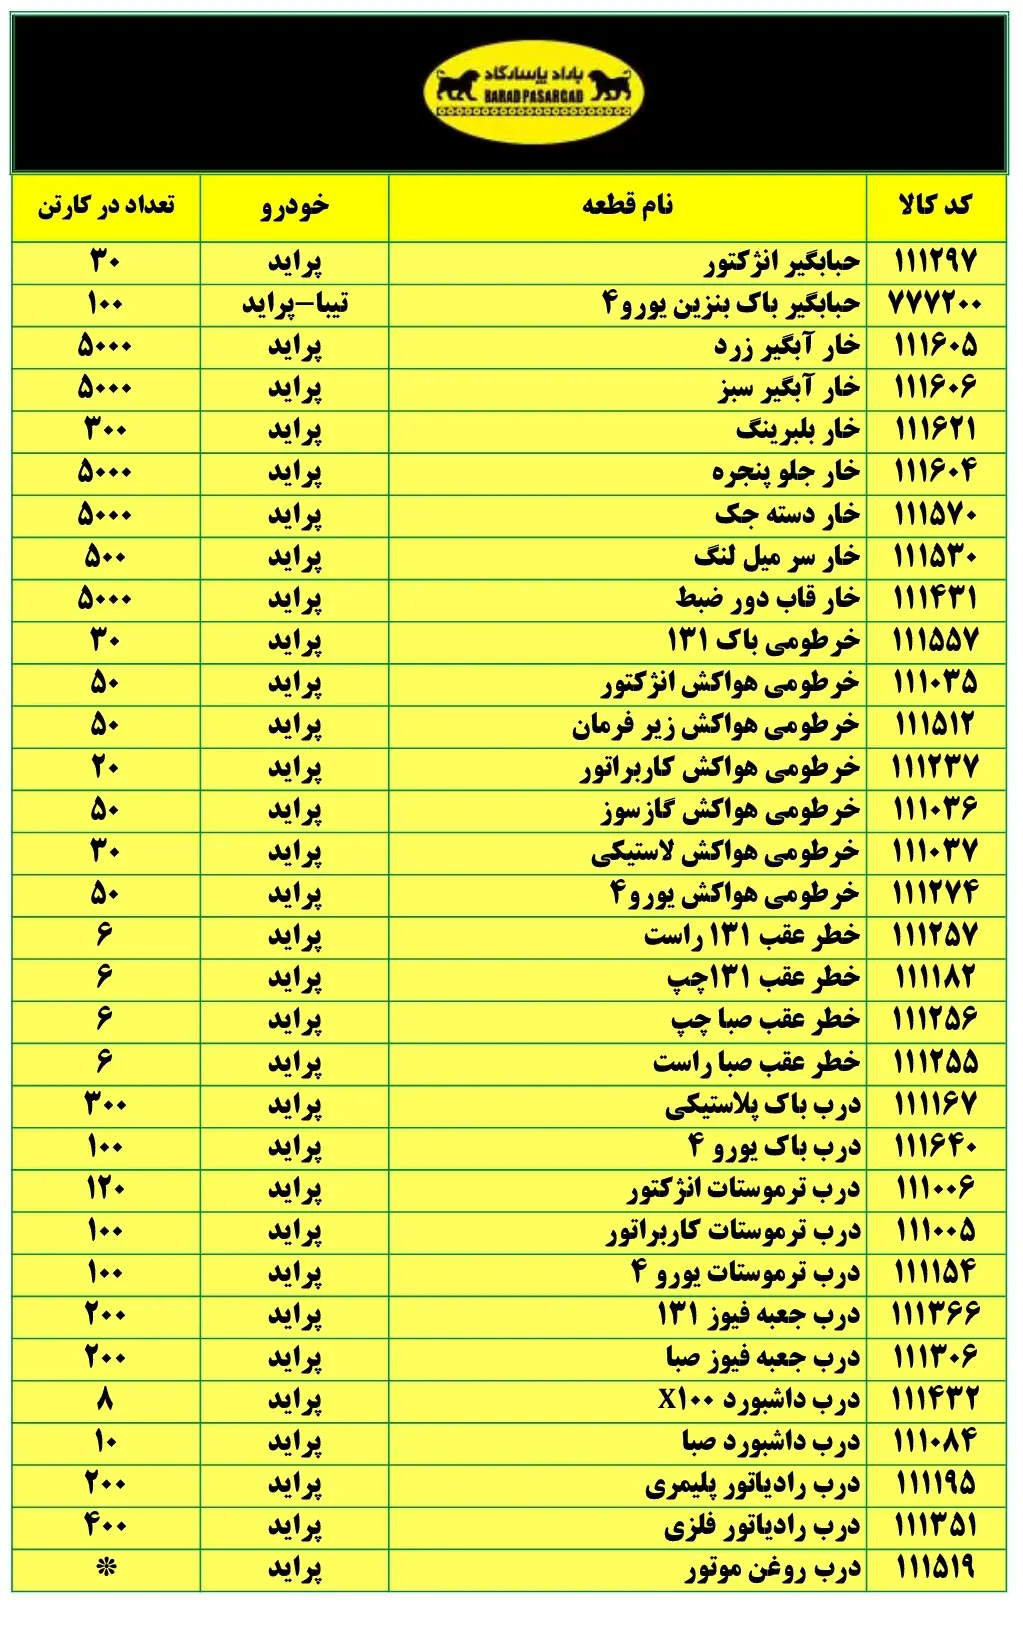 باراد پاسارگاد
BARAD PASARGAD
کد کالا نام قطعه خودرو تعداد در کارتن
۱۱۱۲۹۷ حبابگیر انژکتور پراید ۳۰
۷۷۷۲۰۰ حبابگیر باک بنزین یورو۴ تیبا-پراید ۱۰۰
۱۱۱۶۰۵ خار آبگیر زرد پراید ۵۰۰۰
۱۱۱۶۰۶ خار آبگیر سبز پراید ۵۰۰۰
۱۱۱۶۲۱ خار بلبرینگ پراید ۳۰۰
۱۱۱۶۰۴ خار جلو پنجره پراید ۵۰۰۰
۱۱۱۵۷۰ خار دسته جک پراید ۵۰۰۰
۱۱۱۵۳۰ خار سر میل لنگ پراید ۵۰۰
۱۱۱۴۳۱ خار قاب دور ضبط پراید ۵۰۰۰
۱۱۱۵۵۷ خرطومی باک ۱۳۱ پراید ۳۰
۱۱۱۰۳۵ خرطومی هواکش انژکتور پراید ۵۰
۱۱۱۵۱۲ خرطومی هواکش زیر فرمان پراید ۵۰
۱۱۱۲۳۷ خرطومی هواکش کاربراتور پراید ۲۰
۱۱۱۰۳۶ خرطومی هواکش گازسوز پراید ۵۰
۱۱۱۰۳۷ خرطومی هواکش لاستیکی پراید ۳۰
۱۱۱۲۷۴ خرطومی هواکش یورو۴ پراید ۵۰
۱۱۱۲۵۷ خطر عقب ۱۳۱ راست پراید ۶
۱۱۱۱۸۲ خطر عقب ۱۳۱چپ پراید ۶
۱۱۱۲۵۶ خطر عقب صبا چپ پراید ۶
۱۱۱۲۵۵ خطر عقب صبا راست پراید ۶
۱۱۱۱۶۷ درب باک پلاستیکی پراید ۳۰۰
۱۱۱۶۴۰ درب باک یورو ۴ پراید ۱۰۰
۱۱۱۰۰۶ درب ترموستات انژکتور پراید ۱۲۰
۱۱۱۰۰۵ درب ترموستات کاربراتور پراید ۱۰۰
۱۱۱۱۵۴ درب ترموستات یورو ۴ پراید ۱۰۰
۱۱۱۳۶۶ درب جعبه فیوز ۱۳۱ پراید ۲۰۰
۱۱۱۳۰۶ درب جعبه فیوز صبا پراید ۲۰۰
۱۱۱۴۳۲ درب داشبورد X۱۰۰ پراید ۸
۱۱۱۰۸۴ درب داشبورد صبا پراید ۱۰
۱۱۱۱۹۵ درب رادیاتور پلیمری پراید ۲۰۰
۱۱۱۳۵۱ درب رادیاتور فلزی پراید ۴۰۰
۱۱۱۵۱۹ درب روغن موتور پراید *